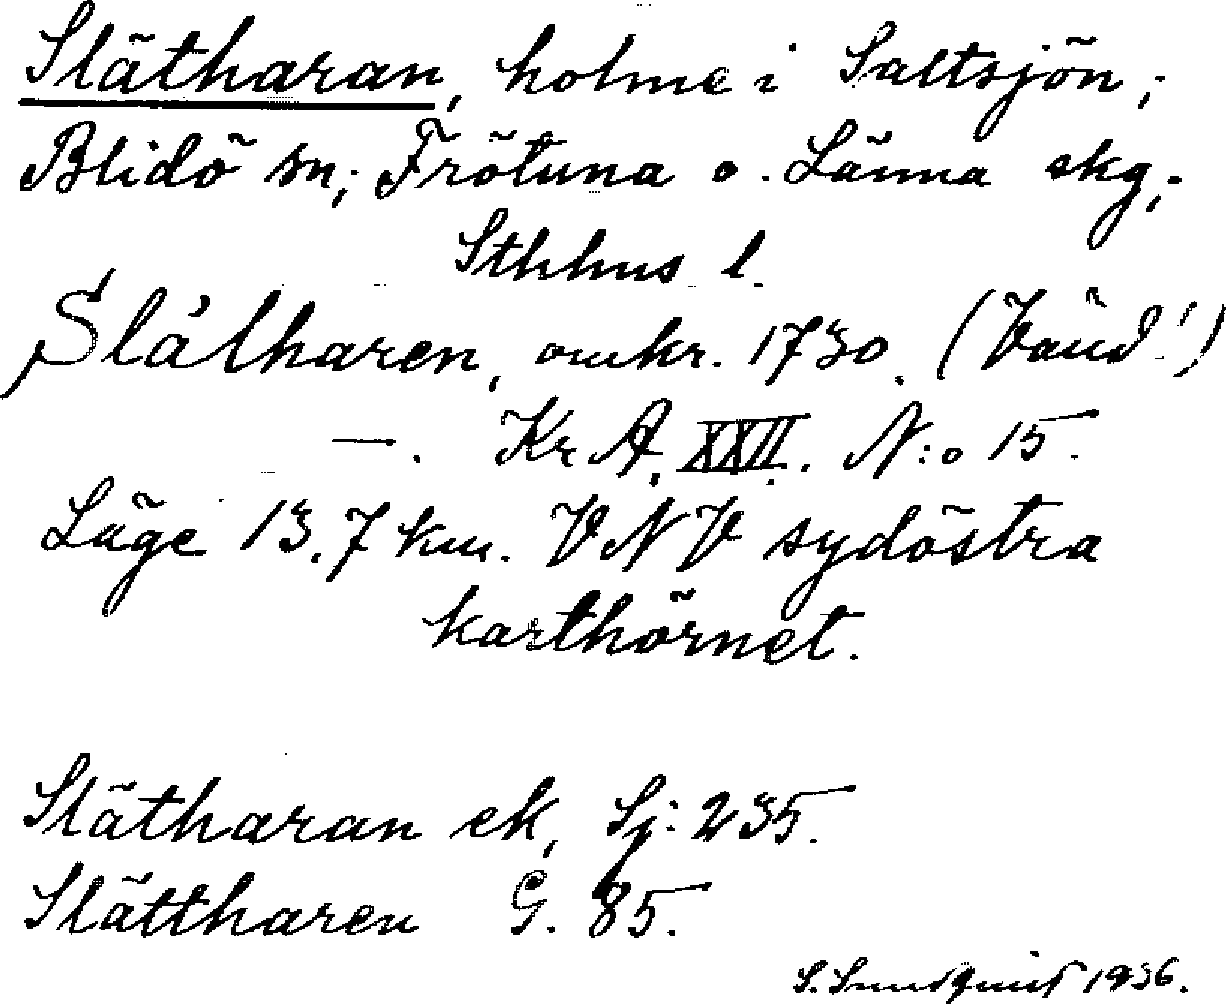 Slätharan, holme i Saltsjön;
Blidö sn; Frötuna o. Länna skg;
Sthhus l.
Slåtharen, omkr. 1730. (Vänd!)
—. Kr A, XXII. N:o 15.
Läge 13,7 km. VNV sydöstra
karthörnet.
Slätharan ek, Sj: 235.
Slättharen G. 85.
S. Sundquist 1936.